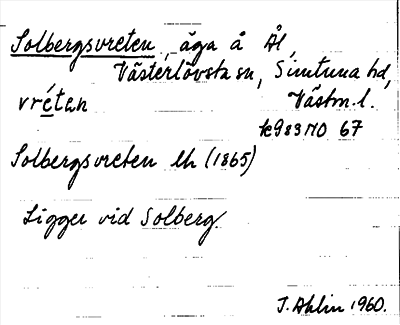 Solbergsvreten, äga å Ål,
Västerlövsta sn, Simtuna hd,
vréten Västm. l.
k983 NO 67
Solbergsvreten lh (1865)
Ligger vid Solberg
J. Ahlin 1960.